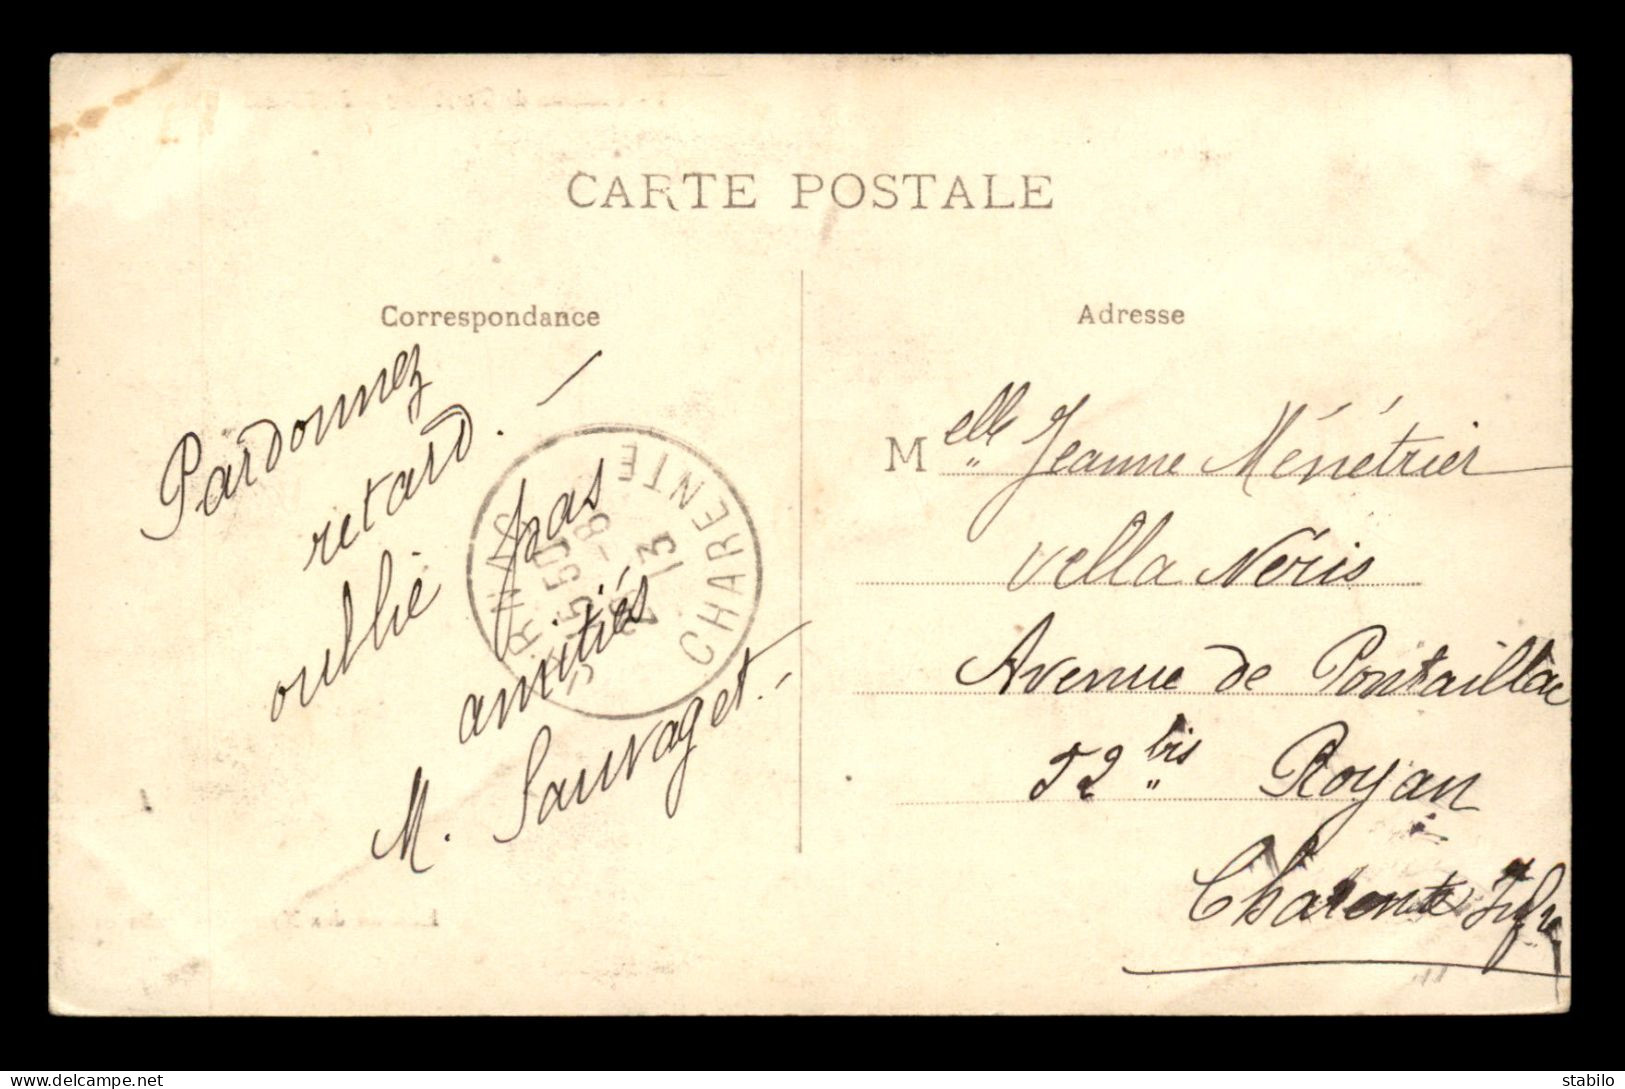 CARTE POSTALE
Correspondance
Pardonnez
retard. —
oublie pas
amitiés
M. Sauvaget. –
CHARENTE
15 50
-8
13
Adresse
Melle Jeanne Ménétrier
Vella Néris
Avenue de Pontaillac
52 bis Royan
Charente Infre
delcampe.net
stabilo